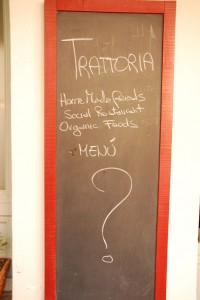 TRATTORIA
Home Made foods
Social Restaurant
Organic Foods
MENÚ
?